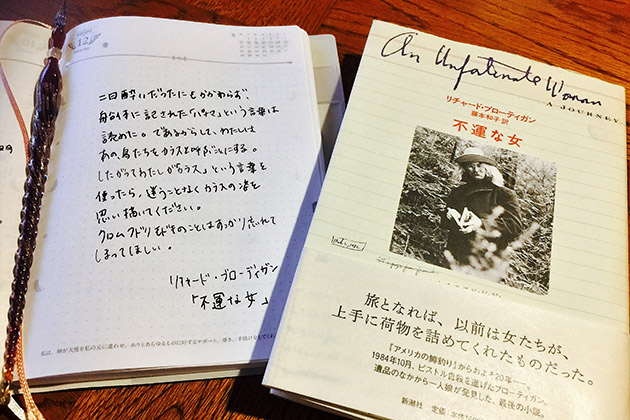 12
二日酔いだったにもかかわらず
船体に記された「パナマ」という言葉は
読めた。であるからして、わたしは
あの鳥たちをカラスと呼ぶことにする。
したがってわたしが「カラス」という言葉を
使ったら、違うことなくカラスの姿を
思い描いてください。
クロムクドリモドキのことはすっかり忘れて
しまってほしい。
リチャード・ブローティガン
「不運な女」
私は、神が天使を私の元に遣わせ、ありとあらゆるものに対するサポート、導き、手助けをしてくれ
An Unfortunate Woman
A JOURNEY
リチャード・ブローティガン
藤本和子 訳
不運な女
旅となれば、以前は女たちが、
上手に荷物を詰めてくれたものだった。
『アメリカの鱒釣り』からおよそ20年――。
1984年10月、ピストル自殺を遂げたブローティガン。
遺品のなかから一人娘が発見した、最後の小説。
新潮社 定価